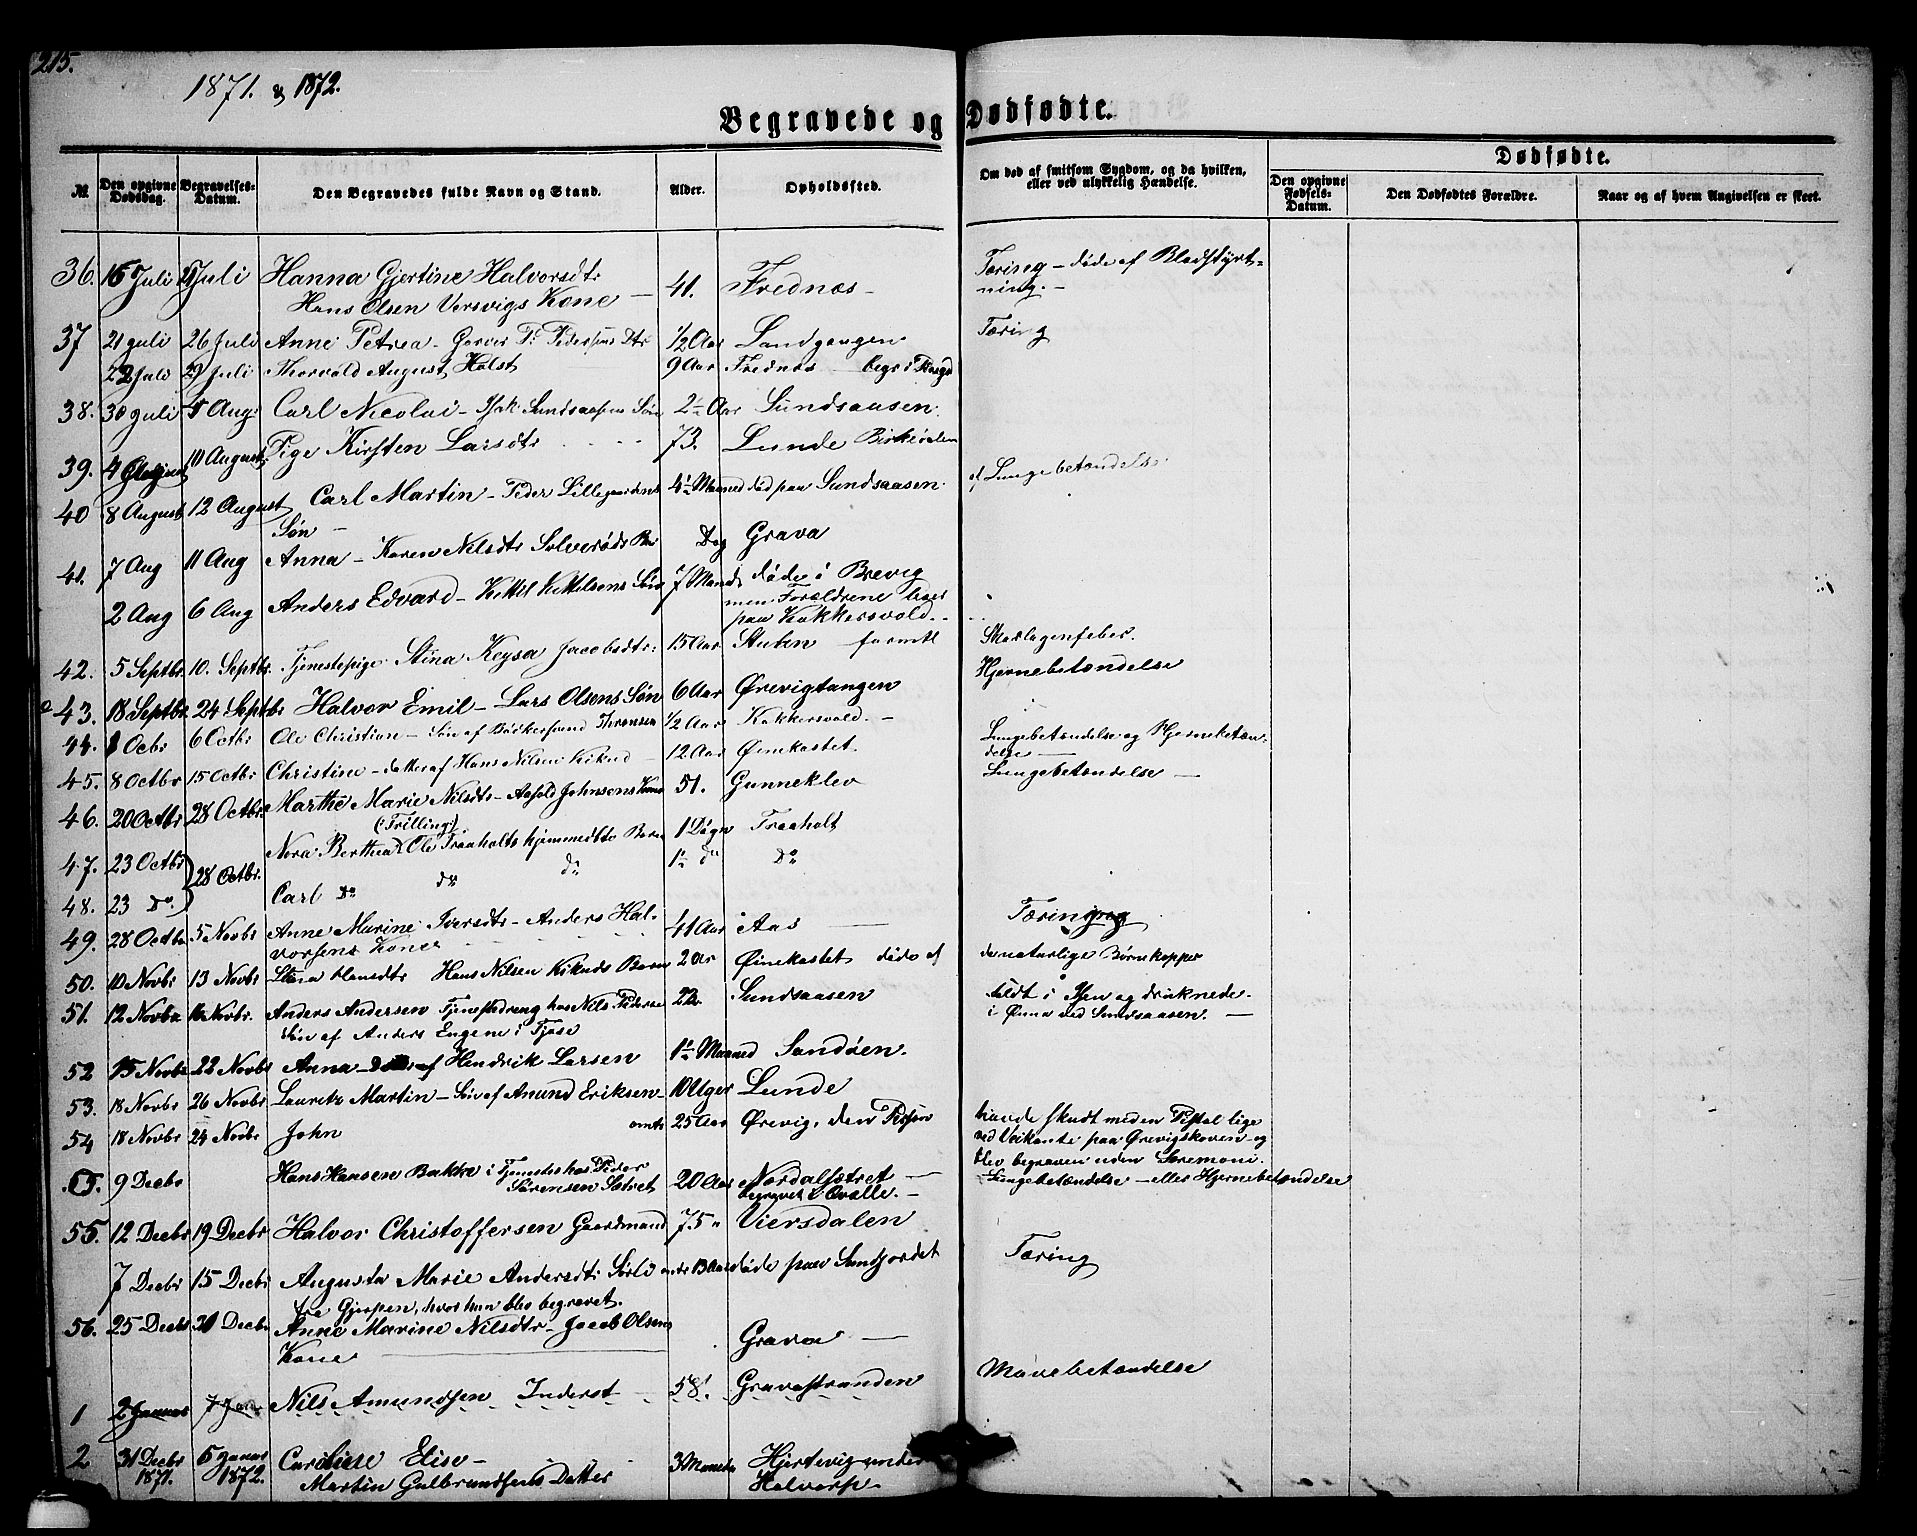 215.
1871. & 1872.
Begravede og Dødfødte.
№
Den opgivne Dødsdag.
Begravelses-Datum.
Den Begravedes fulde Navn og Stand.
Alder.
Opholdssted.
Om død af smitsom Sygdom, og da hvilken, eller ved ulykkelig Hændelse.
Dødfødte.
Den opgivne Fødsels-Datum.
Den Dødfødtes Forældre.
Naar og af hvem Angivelsen er skeet.
36. 16 Juli Juli Hanna Gjertine Halvorsdtr 41. Frednæs - Tæring - døde af Blodstyrt-
Hans Olsen Versvigs Kone - ning. -
37 21 Juli 26 Juli Anne Petrea - Pedersens Dtr ½ Aar Sandgangen Tæring
22 Juli 29 Juli Thorvald August Holst 9 Aar Frednæs begr i
38. 30 Juli 5 Aug: Carl Nicolai - Isak Sundsaasens Søn 2½ Aar Sundsaasen.
39. 4 August 10 August Pige Kirsten Larsdtr 73. Lunde Birkedalen af Lungebetændelse
40 8 August 12 August Carl Martin - Peder Lillegaardens 4½ Maaned død paa Sundsaasen.
Søn -
41. 7 Aug 11 Aug Anna - Karen Nilsdtr Dag Grava
2 Aug 6 Aug Anders Edvard - Kittil Kittilsens Søn 7 Maand døde i Brevig
men Forældrene boer
paa Kokkersvold.
42. 5 Septbr 10. Septbr. Tjenestepige Stina Keysa Jacobsdtr: 15 Aar Skarlagensfeber.
43. 18 Septbr 24 Septbr Halvor Emil - Lars Olsens Søn 6 Aar Ørevigtangen Hjernebetændelse
44. 1 Octbr 6 Octbr Ole Christian - Søn af ½ Aar Kokkersvold. -
45. 8 Octbr 15 Octbr Christine - datter af Hans Nilsen Kikud - 12 Aar Øinekastet. Lungebetændelse og Hjernebetæn-
delse
46. 20 Octbr 28 Octbr Marthe Marie Nilsdtr - Johnsens Kone 51. Gunneklev Lungebetændelse -
(Trilling)
47. 23 Octbr 28 Octbr. Nora Berthea Ole Traaholts hjemmedøbte Barn 1 Døgn Traaholt
48. 23 Do. Carl Do do do 1½ do Do
49. 28 Octbr 5 Novbr Anne Marine Iversdtr - Anders Hal- 41 Aar Aas Tæring
vorsens Kone
50. 10 Novbr 13 Novbr Hansdtr Hans Nilsen Kikuds Barn 2 Aar Øinekastet døde af de naturlige Børnekopper
51. 12 Novbr 16 Novbr. Anders Andersen Tjenestedreng hos Nils Pedersen 22 Sundsaasen faldt i Isen og druknede
Søn af Anders Eugene i Tjøse i ved Sundsaasen. -
52 15 Novbr 22 Novbr Anna - af Hendrik Larsen 1½ Maaned Sandøen.
53. 18 Novbr 26 Novbr Lauritz Martin - Søn af Amund Eriksen 10 Uger Lunde
54 18 Novbr 24 Novbr John omtr 25 Aar Ørevig, skudt med en Pistol lige
ved Veikante paa Ørevigskoven og
blev begraven uden Seremoni.
9 Decbr Hans Hansen Bakke i Tjeneste hos Peder 20 Aar Nordalsetret - Lungebetændelse - eller Hjernebetændelse
Sørensen Sætret begravet i
55. 12 Decbr 19 Decbr Halvor Christoffersen Gaardmand 75 " Viersdalen
7 Decbr 15 Decbr Augusta Marie Andersdtr 13 Aar døde paa Sandjordet Tæring
fra Gjerpen, hvor hun blev begravet.
56. 25 Decbr 31 Decbr Anne Marine Nilsdtr - Jacob Olsens
Kone Grava -
1 2 Januar 7 Januar Nils Amundsen Inderst 58. Gravastranden Mavebetændelse
2 31 Decbr 5 Januar Caroline Elise - 3 Maaneder Hjertevig under
1871. 1872. Martin Gulbrandsens Datter Halvorsp